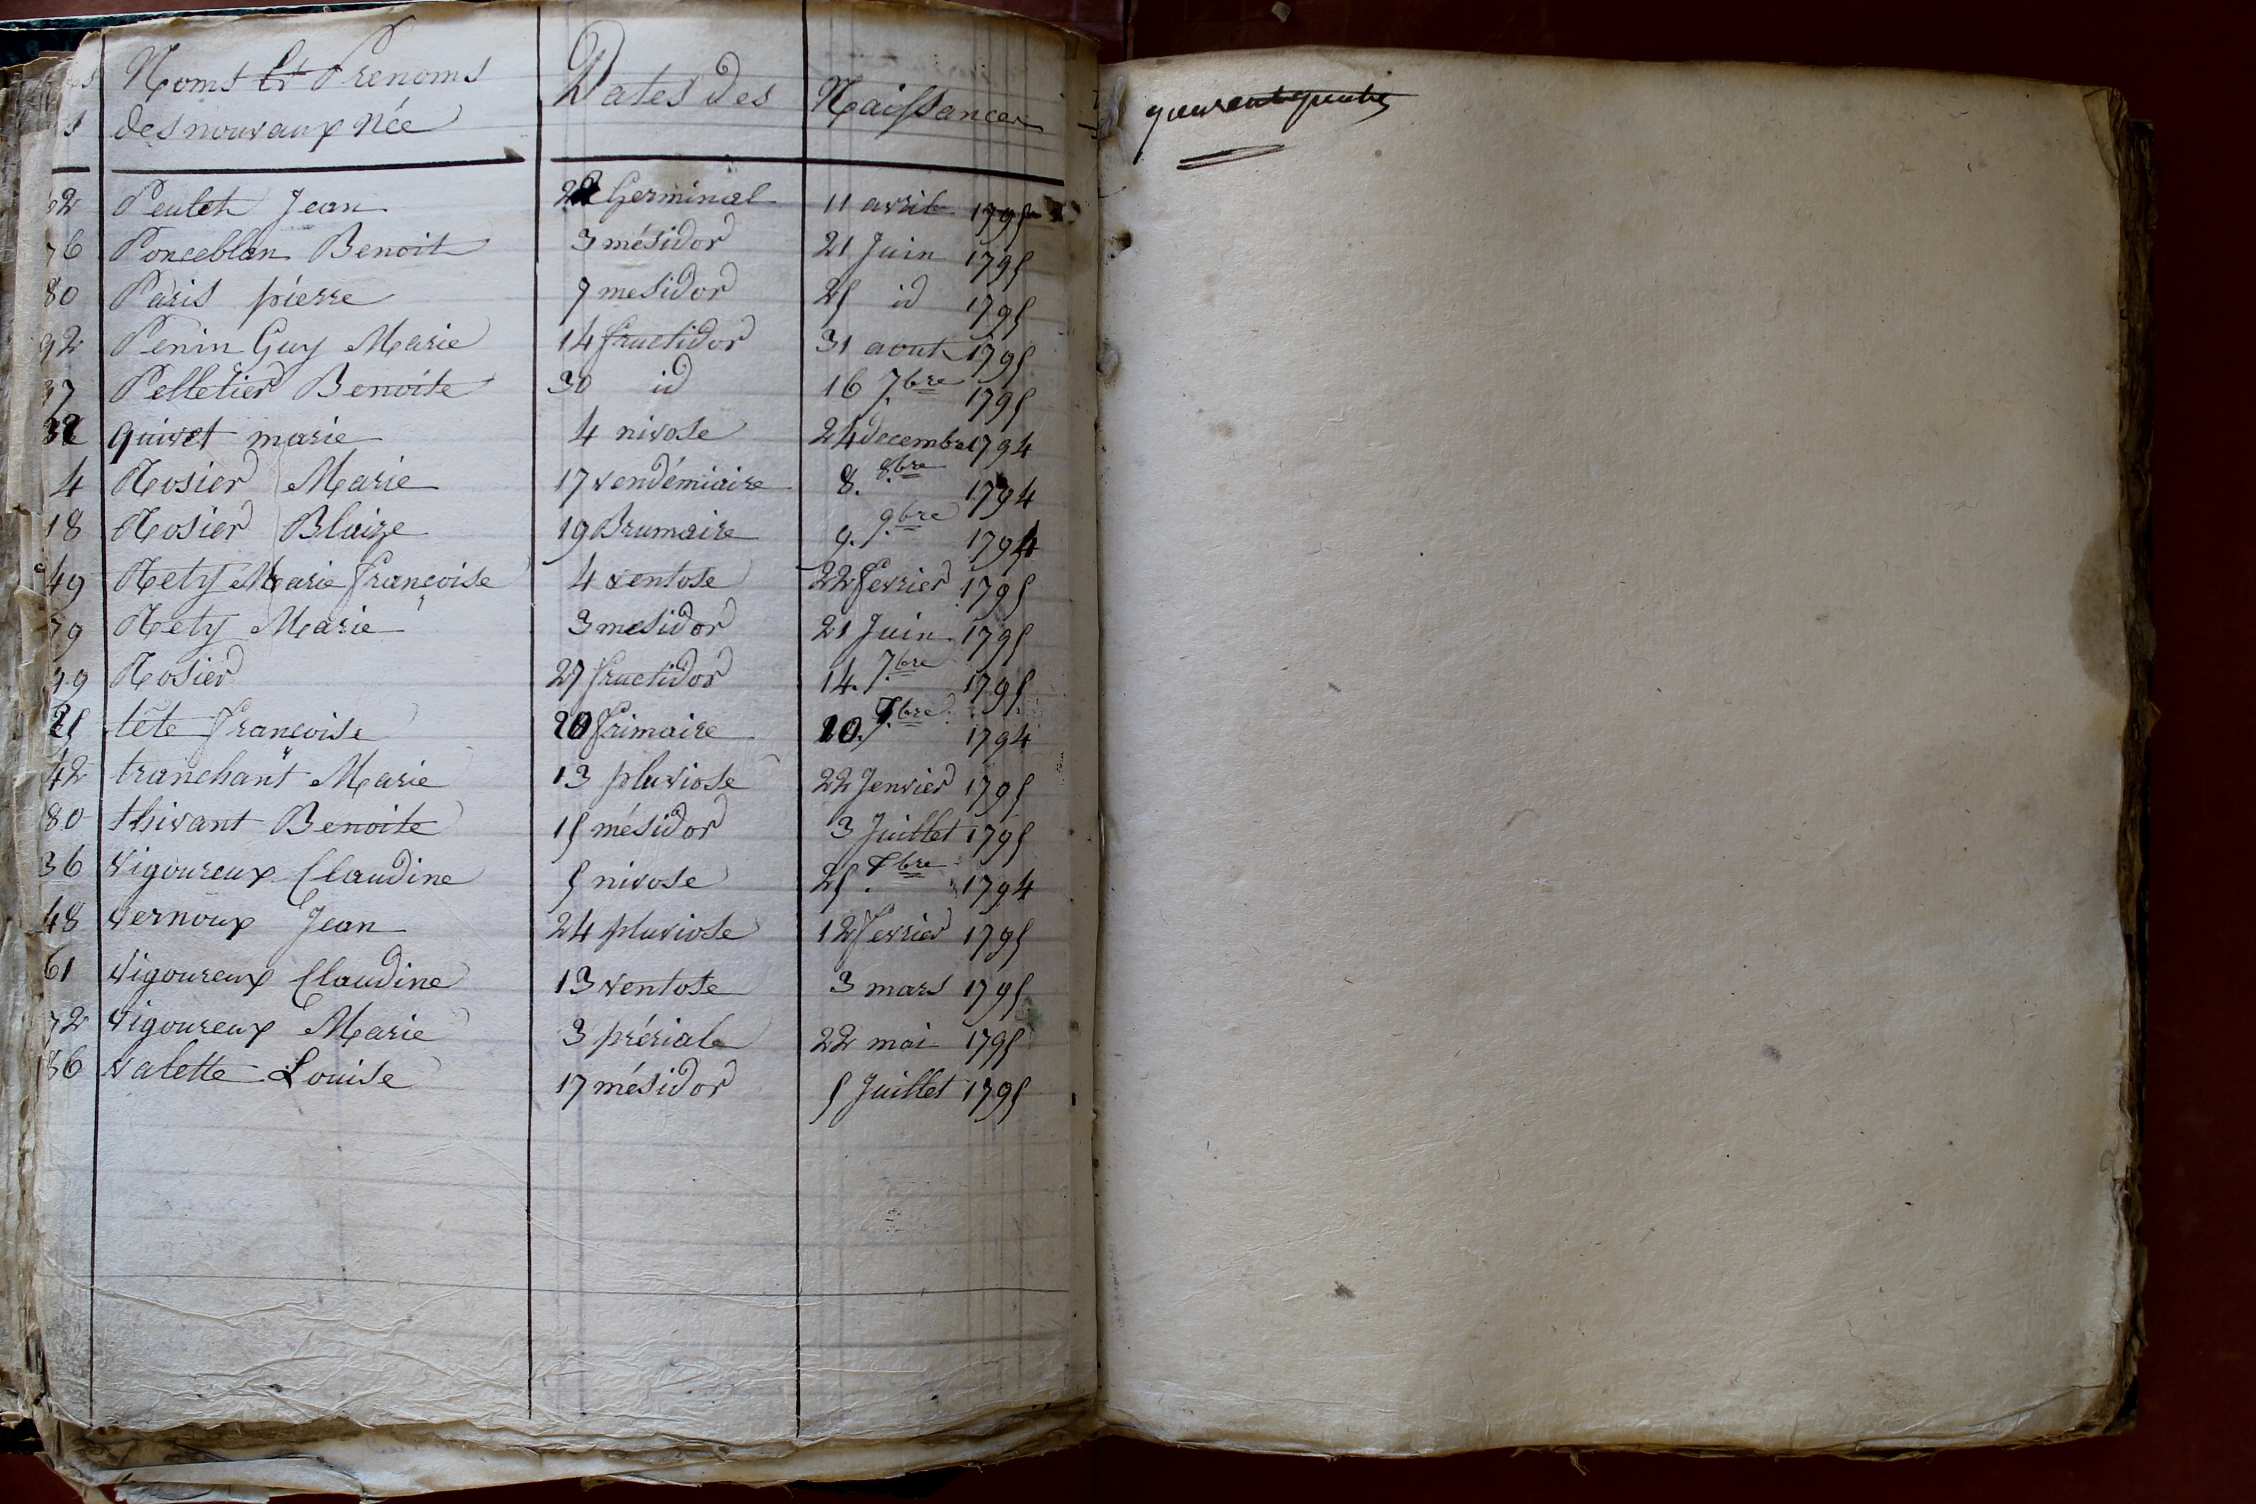 Noms Et Prenoms Dates des Naissances
des nouvaux Née
Peulet Jean 22 Germinal 11 avril 1795
76 Ponceblan Benoit 3 mésidor 21 Juin 1795
80 Paris pierre 7 mesidor 25 id 1795
92 Penin Guy Marie 14 fructidor 31 aout 1795
Pelletier Benoite 30 id 16 7.bre 1795
32 quivet marie 4 nivose 24 decembre 1794
4 Rosier Marie 17 vendémiaire 8. 8.bre 1794
18 Rosier Blaize 19 Brumaire 9. 9.bre 1794
49 Rety Marie Françoise 4 ventose 22 fevrier 1795
79 Rety Marie 3 mesidor 21 Juin 1795
99 Rosier 27 fructidor 14. 7.bre 1795
tête françoise 20 frimaire 10. 1794
42 tranchant Marie 13 pluviose 22 Jenvier 1795
80 thivant Benoite 15 mésidor 3 Juillet 1795
36 Vigoureux Claudine 5 nivose 25 1794
48 Vernoux Jean 24 pluviose 12 fevrier 1795
61 Vigoureux Claudine 13 ventose 3 mars 1795
72 Vigoureux Marie 3 prérial 22 mai 1795
86 Valette Louise 17 mésidor 5 Juillet 1795